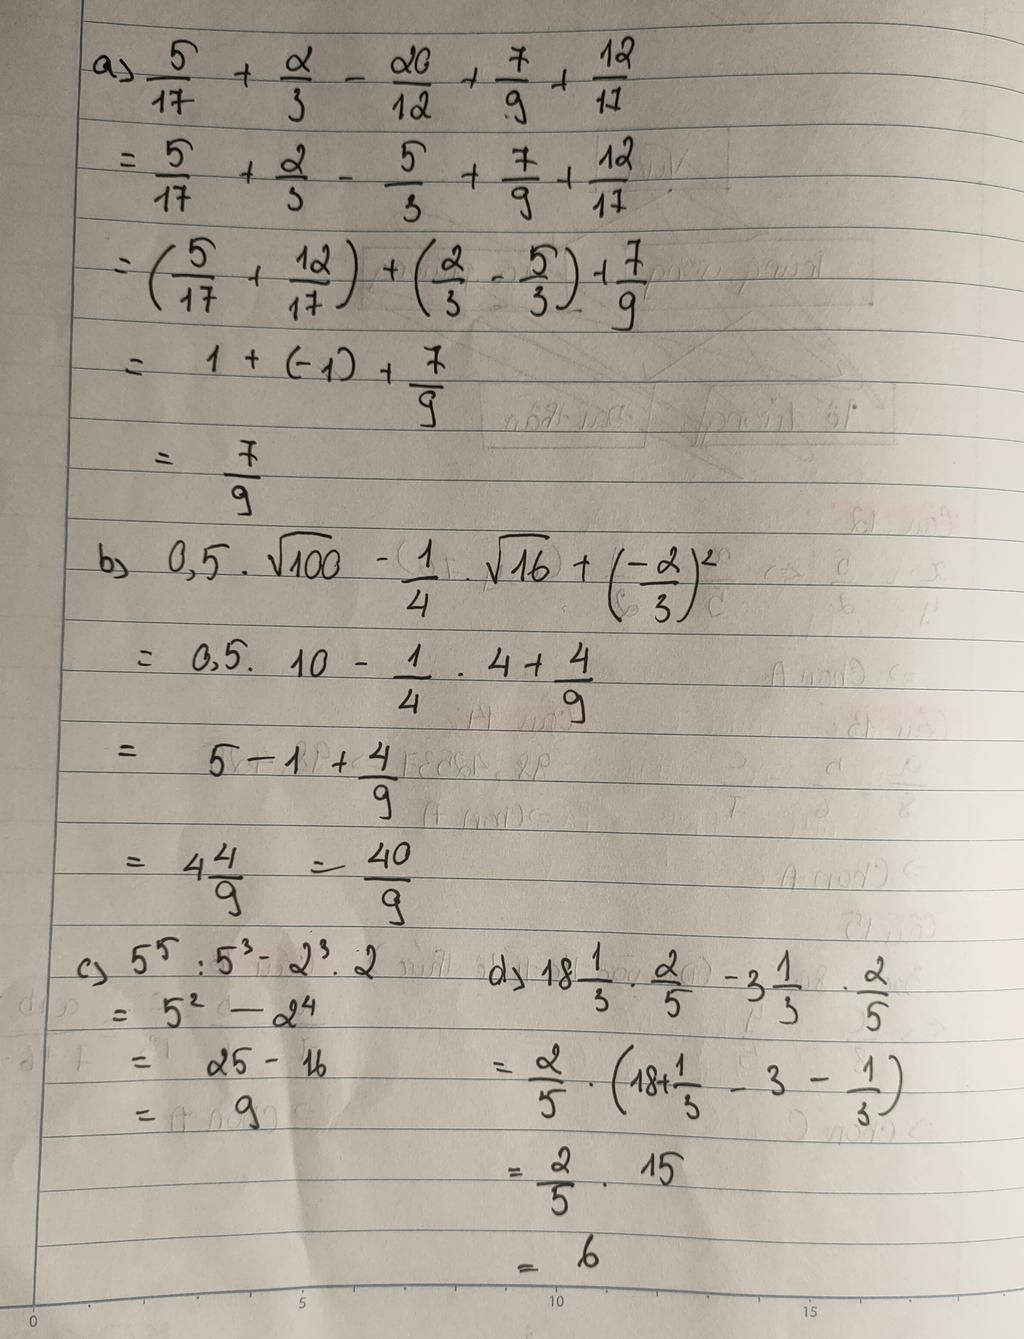 a) 5/17 + 2/3 - 20/12 + 7/9 + 12/17
= 5/17 + 2/3 - 5/3 + 7/9 + 12/17
= (5/17 + 12/17) + (2/3 - 5/3) + 7/9
= 1 + (-1) + 7/9
= 7/9
b) 0,5 . √100 - 1/4 . √16 + (-2/3)²
= 0,5 . 10 - 1/4 . 4 + 4/9
= 5 - 1 + 4/9
= 4 4/9 = 40/9
c) 5⁵ : 5³ - 2³ . 2
= 5² - 2⁴
= 25 - 16
= 9
d) 18 1/3 . 2/5 - 3 1/3 . 2/5
= 2/5 . (18 + 1/3 - 3 - 1/3)
= 2/5 . 15
= 6
0 5 10 15